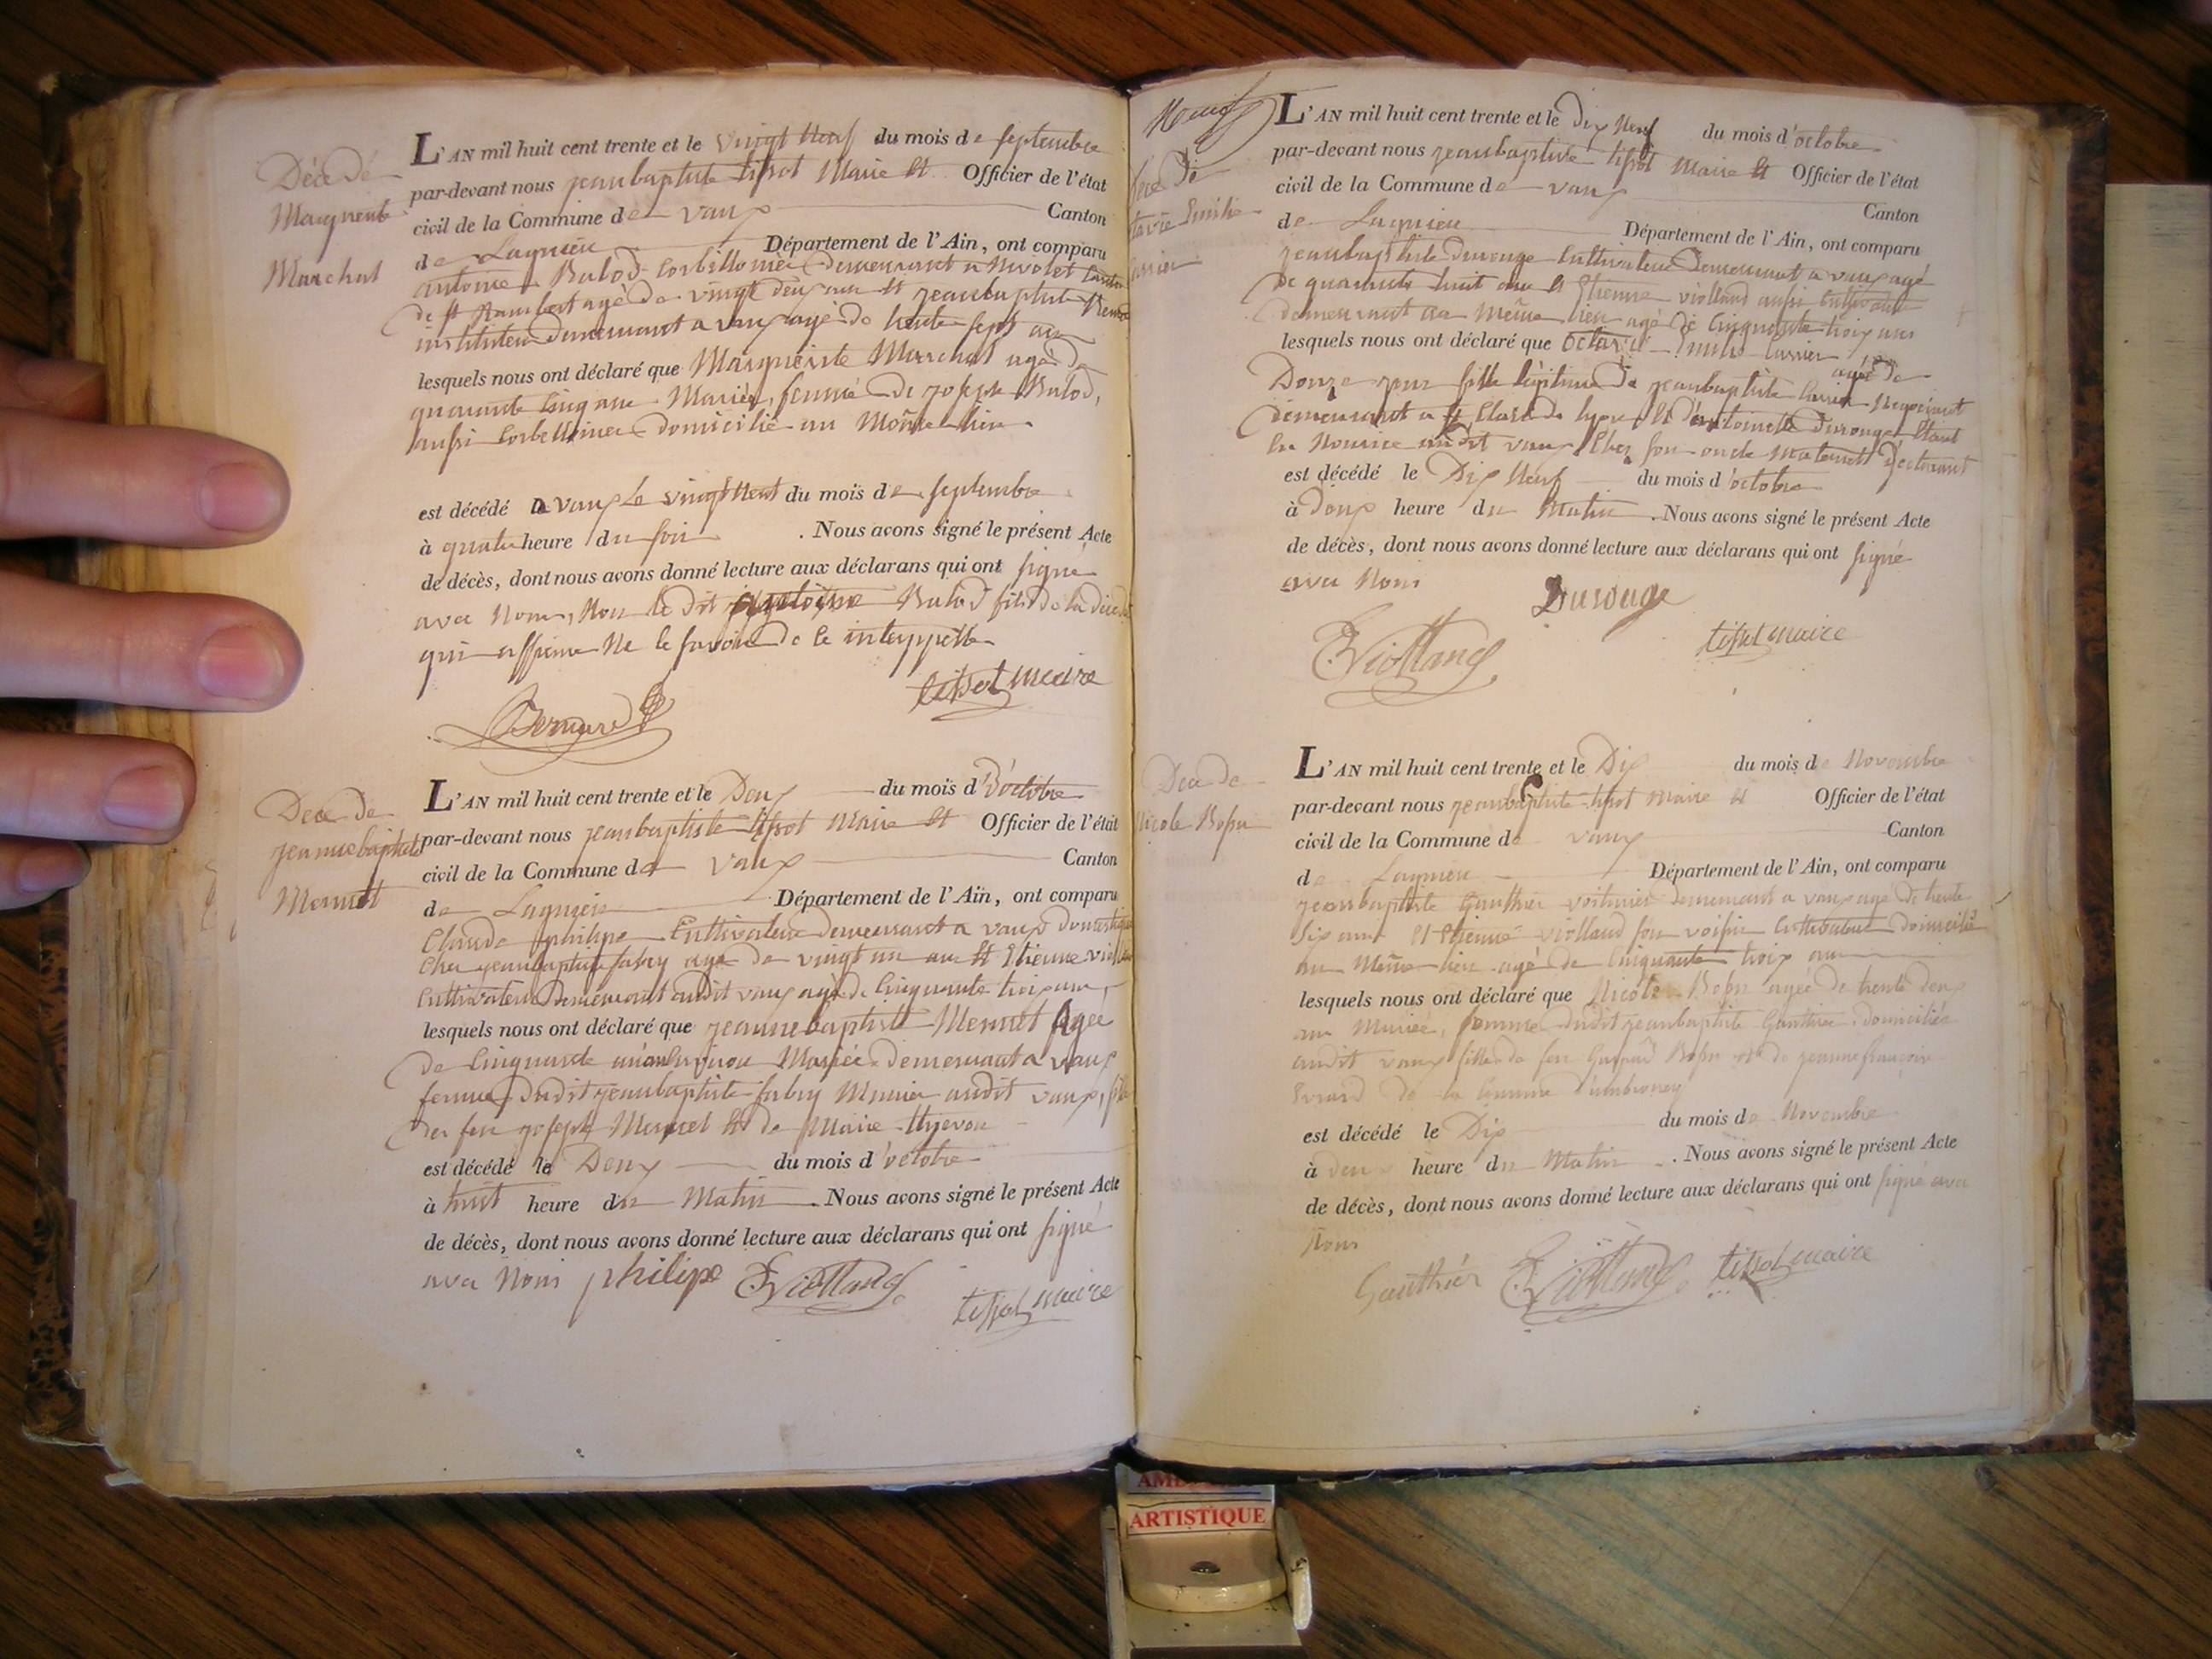 Décé de
Marguerite
Marchat
L'AN mil huit cent trente et le vingt neuf du mois de septembre
par-devant nous jeanbaptiste tissot Maire et Officier de l'état
civil de la Commune de vaux Canton
de Lagnieu Département de l'Ain, ont comparu
antoine Balod demeurant a Nivolet
de st Rambert agé de vingt deux ans et jeanbaptiste
instituteur demeurant a vaux agé de trente sept ans
lesquels nous ont déclaré que Marguerite Marchat agé de
quarante cinq ans Mariée, femme de joseph Balod,
aussi domicilié au Même lieu
est décédé a vaux le vingt neuf du mois de septembre
à quatre heure du soir . Nous avons signé le présent Acte
de décès, dont nous avons donné lecture aux déclarans qui ont signé
avec Nous, Non le dit antoine Balod fils de la
qui affirme Ne le savoir de ce interppellé
tissot maire
Bernard
Decé de
jeannebaptiste
Mermet
L'AN mil huit cent trente et le Deux du mois d'octobre
par-devant nous jeanbaptiste tissot Maire et Officier de l'état
civil de la Commune de vaux Canton
de Lagnieu Département de l'Ain, ont comparu
Claude philipe Cultivateur demeurant a vaux domestique
chez jeanbaptiste fabry agé de vingt un ans et Etienne
Cultivateur demeurant audit vaux agé de Cinquante trois ans,
lesquels nous ont déclaré que jeannebaptiste Mermet Agée
de Cinquante Mariée demeurant a vaux
femme dudit jeanbaptiste fabry Munier audit vaux,
de feu joseph Mermet et de Marie thevon
est décédé le Deux du mois d'octobre
à huit heure du Matin . Nous avons signé le présent Acte
de décès, dont nous avons donné lecture aux déclarans qui ont signé
avec Nous philipe E Violland
tissot maire
L'AN mil huit cent trente et le dix Neuf du mois d'octobre
par-devant nous jeanbaptiste tissot Maire et Officier de l'état
civil de la Commune de vaux
Canton
de Lagnieu Département de l'Ain, ont comparu
jeanbaptiste durouge Cultivateur demeurant a vaux agé
de quarante huit ans et Etienne violland aussi Cultivateur
demeurant au même lieu agé de Cinquante trois ans
lesquels nous ont déclaré que Octavie Emilie agée de
Douze jour fille légitime de jeanbaptiste Negociant
demeurant a st Clair de lyon et d'antoinette Durouge Etant
En Nourice audit vaux Chez son oncle Maternel déclarant
est décédé le Dix Neuf du mois d'octobre
à Deux heure du Matin . Nous avons signé le présent Acte
de décès, dont nous avons donné lecture aux déclarans qui ont signé
avec Nous Durouge
E Violland tissot maire
Decé de
Nicole Bossu
L'AN mil huit cent trente et le Dix du mois de Novembre
par-devant nous jeanbaptiste tissot Maire et Officier de l'état
civil de la Commune de vaux Canton
de Lagnieu Département de l'Ain, ont comparu
jeanbaptiste Gauthier voiturier demeurant a vaux agé de trente
Six ans et Etienne violland son voisin Cultivateur domicilié
au Même lieu agé de Cinquante trois ans
lesquels nous ont déclaré que Nicole Bossu agée de trente deux
ans Mariée, femme dudit jeanbaptiste Gauthier domiciliée
audit vaux fille de feu Gaspard Bossu et de jeanne françoise
Evrard de la Commune d'ambronay
est décédé le Dix du mois de Novembre
à deux heure du Matin . Nous avons signé le présent Acte
de décès, dont nous avons donné lecture aux déclarans qui ont signé avec
Nous
Gauthier E Violland tissot maire
ARTISTIQUE